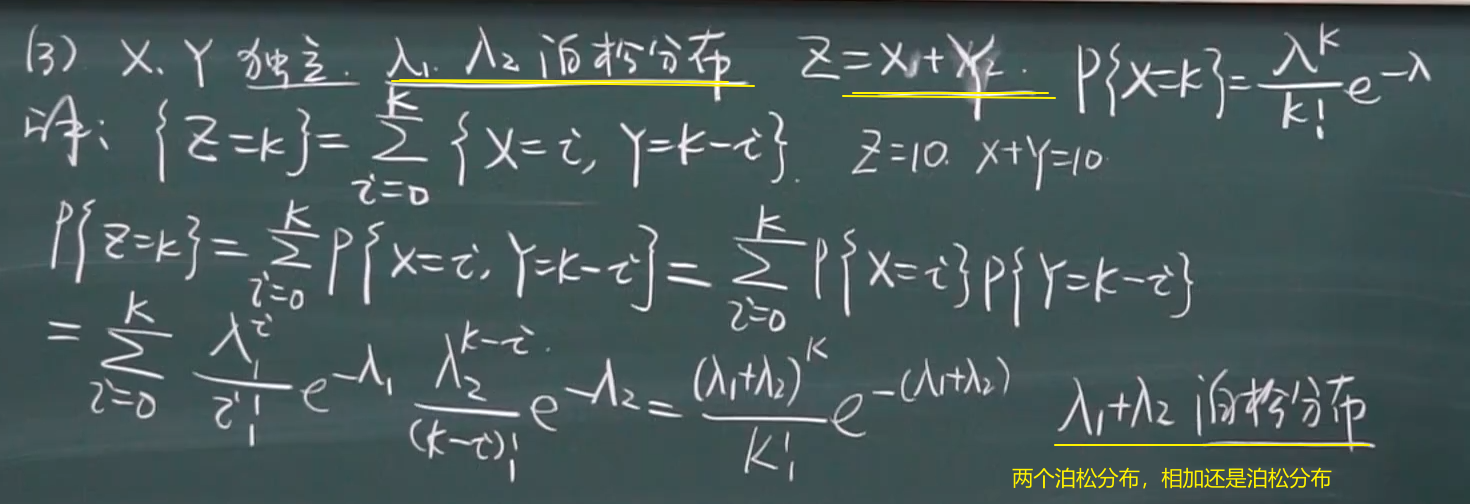 (3) X、Y 独立. λ₁. λ₂ 泊松分布 Z=X+Y. P{X=k}=\frac{λ^k}{k!}e^{-λ}
证: {Z=k}=\sum_{i=0}^{k}{X=i, Y=k-i}. Z=10. X+Y=10.
P{Z=k}=\sum_{i=0}^{k}P{X=i, Y=k-i}=\sum_{i=0}^{k}P{X=i}P{Y=k-i}
=\sum_{i=0}^{k}\frac{λ_1^i}{i!}e^{-λ_1}\frac{λ_2^{k-i}}{(k-i)!}e^{-λ_2}=\frac{(λ_1+λ_2)^k}{k!}e^{-(λ_1+λ_2)} λ₁+λ₂ 泊松分布
两个泊松分布，相加还是泊松分布